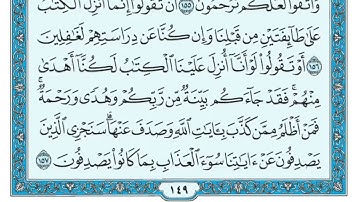 وَاتَّقُوا۟ لَعَلَّكُمْ تُرْحَمُونَ ١٥٥ أَن تَقُولُوٓا۟ إِنَّمَآ أُنزِلَ الْكِتَـٰبُ
عَلَىٰ طَآئِفَتَيْنِ مِن قَبْلِنَا وَإِن كُنَّا عَن دِرَاسَتِهِمْ لَغَـٰفِلِينَ
١٥٦ أَوْ تَقُولُوا۟ لَوْ أَنَّآ أُنزِلَ عَلَيْنَا الْكِتَـٰبُ لَكُنَّآ أَهْدَىٰ
مِنْهُمْ ۚ فَقَدْ جَآءَكُم بَيِّنَةٌ مِّن رَّبِّكُمْ وَهُدًى وَرَحْمَةٌ ۚ
فَمَنْ أَظْلَمُ مِمَّن كَذَّبَ بِـَٔايَـٰتِ اللَّهِ وَصَدَفَ عَنْهَا ۗ سَنَجْزِى الَّذِينَ
يَصْدِفُونَ عَنْ ءَايَـٰتِنَا سُوٓءَ الْعَذَابِ بِمَا كَانُوا۟ يَصْدِفُونَ ١٥٧
١٤٩